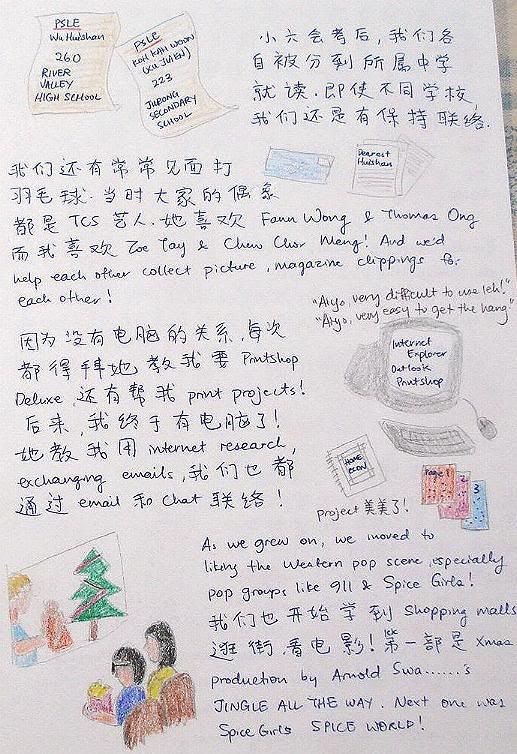 PSLE
Wu Huishan
260
RIVER
VALLEY
HIGH SCHOOL
PSLE
KOH KAH WOON
(XU JIA'EN)
223
JURONG
SECONDARY
SCHOOL
小六会考后，我们各
自被分到所属中学
就读．即使不同学校，
我们还是有保持联络．
Dearest
Huishan
我们还有常常见面打
羽毛球．当时大家的偶象
都是 TCS 艺人．她喜欢 Fann Wong & Thomas Ong
而我喜欢 Zoe Tay & Chew Chor Meng! And we'd
help each other collect picture, magazine clippings for
each other!
"Aiyo, very difficult to use leh!"
"Aiyo, very easy to get the hang"
Internet
Explorer
Outlook
Printshop
因为没有电脑的关系，每次
都得拜她教我要 Printshop
Deluxe，还有帮我 print projects!
后来，我终于有电脑了！
她教我用 internet research,
exchanging emails，我们也都
通过 email 和 chat 联络！
HOME
ECON
Page 1
2
3
project 美美了！
As we grew on, we moved to
liking the Western pop scene, especially
pop groups like 911 & Spice Girls!
我们也开始学到 Shopping malls
逛街，看电影！第一部是 Xmas
production by Arnold Swa......'s
JINGLE ALL THE WAY. Next one was
Spice Girls SPICE WORLD!